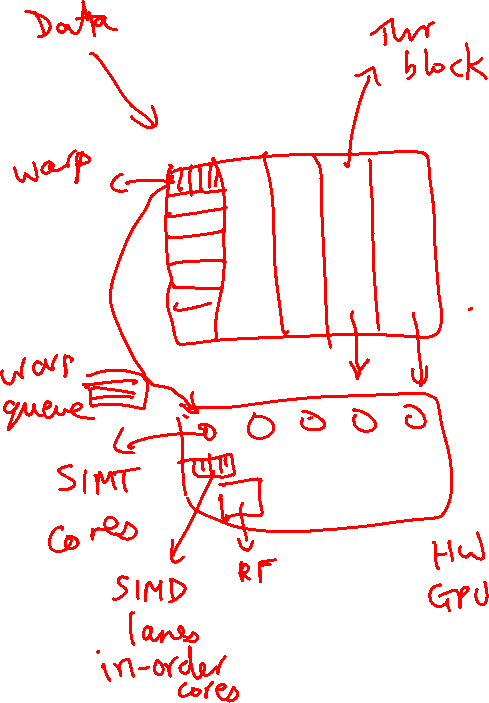 Data
Thr
block
warp
warp
queue
SIMT
cores
RF
SIMD
lanes
in-order
cores
HW
GPU